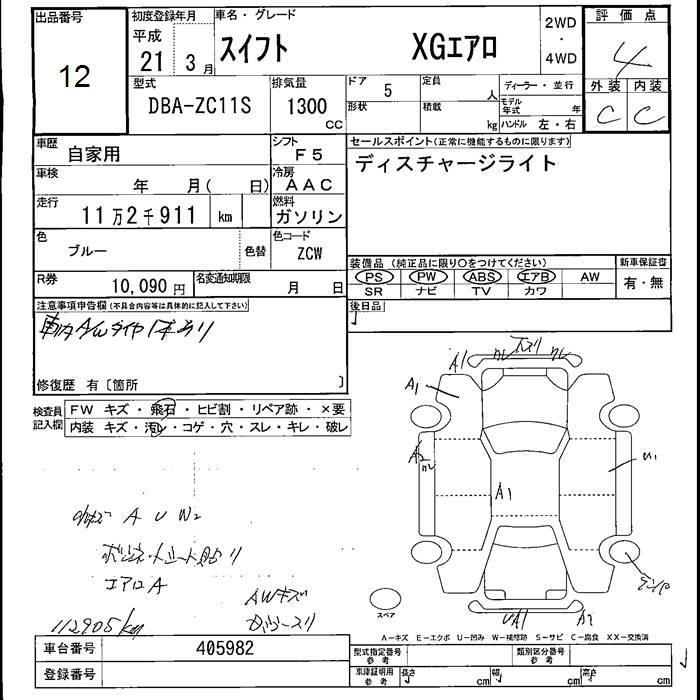 出品番号 初度登録年月 車名・グレード 2WD ・ 4WD 評価点
12 平成 21 3月 スイフト XGエアロ 4
型式 排気量 ドア 5 定員 人 ディーラー・並行 外装 内装
DBA-ZC11S 1300 CC 形状 積載 kg モデル年式 年 C C
ハンドル 左・右
車歴 自家用 シフト F5 セールスポイント(正常に機能するものに限ります)
車検 年 月( 日) 冷房 AAC ディスチャージライト
走行 11万2千911 km 燃料 ガソリン
色 ブルー 色替 色コード ZCW
装備品(純正品に限り○をつけてください) 新車保証書
R券 10,090円 名変通知期限 月 日 PS PW ABS エアB AW 有・無
SR ナビ TV カワ
注意事項申告欄(不具合内容等は具体的に記入して下さい) 後日品
車内AWタイヤ1本あり
修復歴 有〔箇所 〕
検査員記入欄 FW キズ・飛石・ヒビ割・リペア跡・×要
内装 キズ・汚レ・コゲ・穴・スレ・キレ・破レ
A1
A1
A1
A U W2
エアロA
AWキズ
112905km
UA1 A2
スペア
A-キズ E-エクボ U-凹み W-補修跡 S-サビ C-腐食 XX-交換済
車台番号 405982 型式指定番号 参考 類別区分番号 参考
登録番号 車庫証明用 参考 長さ cm 幅 cm 高さ cm